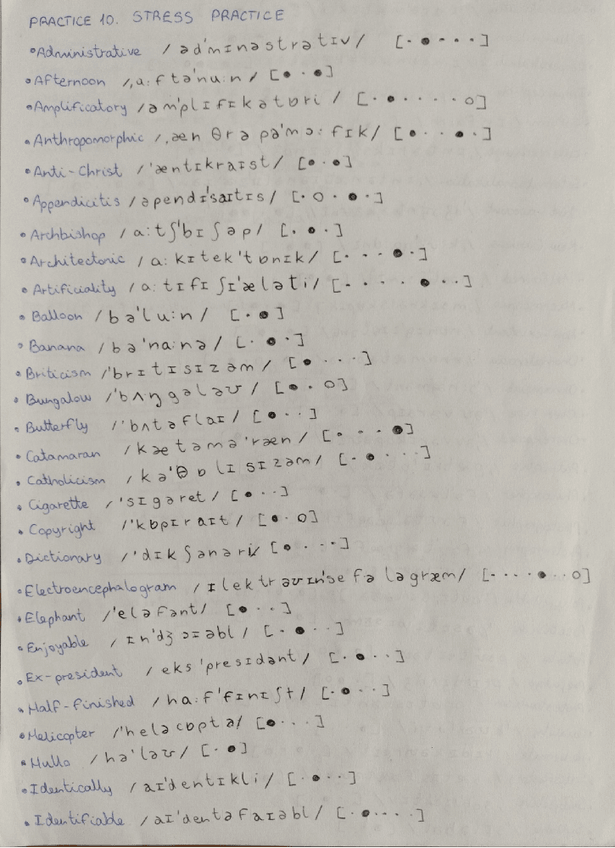 PRACTICE 10. STRESS PRACTICE
•Administrative /əd'mɪnəstrətɪv/ [·●···]
•Afternoon /ˌɑ:ftə'nu:n/ [●·●]
•Amplificatory /əm'plɪfɪkətɒri/ [·●····○]
•Anthropomorphic /ˌænθrəpə'mɔ:fɪk/ [●··●·]
•Anti-Christ /'æntɪkraɪst/ [●·●]
•Appendicitis /əpendɪ'saɪtɪs/ [·○·●·]
•Archbishop /ɑ:tʃ'bɪʃəp/ [·●·]
•Architectonic /ɑ:kɪtek'tɒnɪk/ [···●·]
•Artificiality /ɑ:tɪfɪʃɪ'æləti/ [····●··]
•Balloon /bə'lu:n/ [·●]
•Banana /bə'nɑ:nə/ [·●·]
•Briticism /'brɪtɪsɪzəm/ [●···]
•Bungalow /'bʌŋgələʊ/ [●·○]
•Butterfly /'bʌtəflaɪ/ [●··]
•Catamaran /kætəmə'ræn/ [···●]
•Catholicism /kə'θɒlɪsɪzəm/ [·●···]
•Cigarette /'sɪgəret/ [●··]
•Copyright /'kɒpɪraɪt/ [●·○]
•Dictionary /'dɪkʃənəri/ [●···]
•Electroencephalogram /ɪlektrəʊɪn'sefələgræm/ [····●··○]
•Elephant /'eləfənt/ [●··]
•Enjoyable /ɪn'dʒɔɪəbl/ [·●··]
•Ex-president /eks'presɪdənt/ [·●··]
•Half-finished /hɑ:f'fɪnɪʃt/ [·●·]
•Helicopter /'heləcɒptə/ [●···]
•Hullo /hə'ləʊ/ [·●]
•Identically /aɪ'dentɪkli/ [·●··]
•Identifiable /aɪ'dentəfaɪəbl/ [·●····]